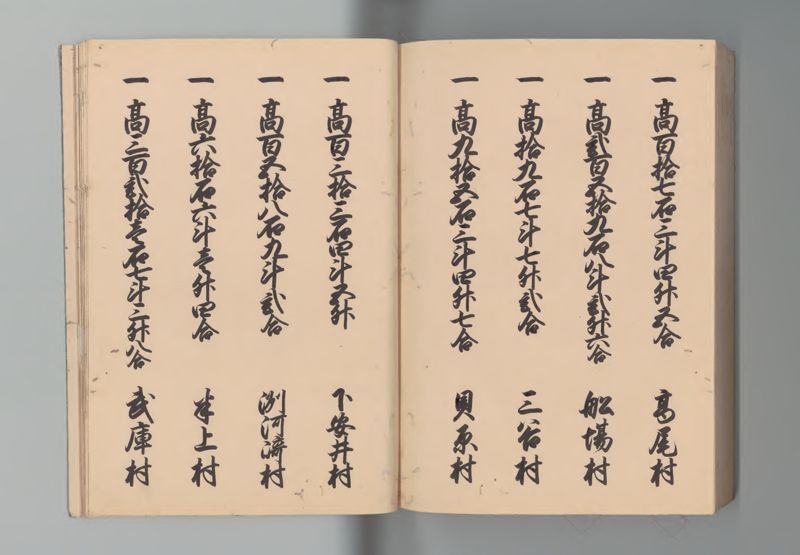 一 高百拾七石三斗四升五合 高尾村
一 高弐百五拾九石八斗弐升六合 船場村
一 高拾九石七斗七升弐合 三谷村
一 高九拾五石三斗四升七合 貝原村
一 高百三拾三石四斗五升 下安井村
一 高百五拾八石九斗弐合 渕河澪村
一 高六拾石六斗壱升四合 半上村
一 高三百弐拾壱石七斗三升八合 武庫村